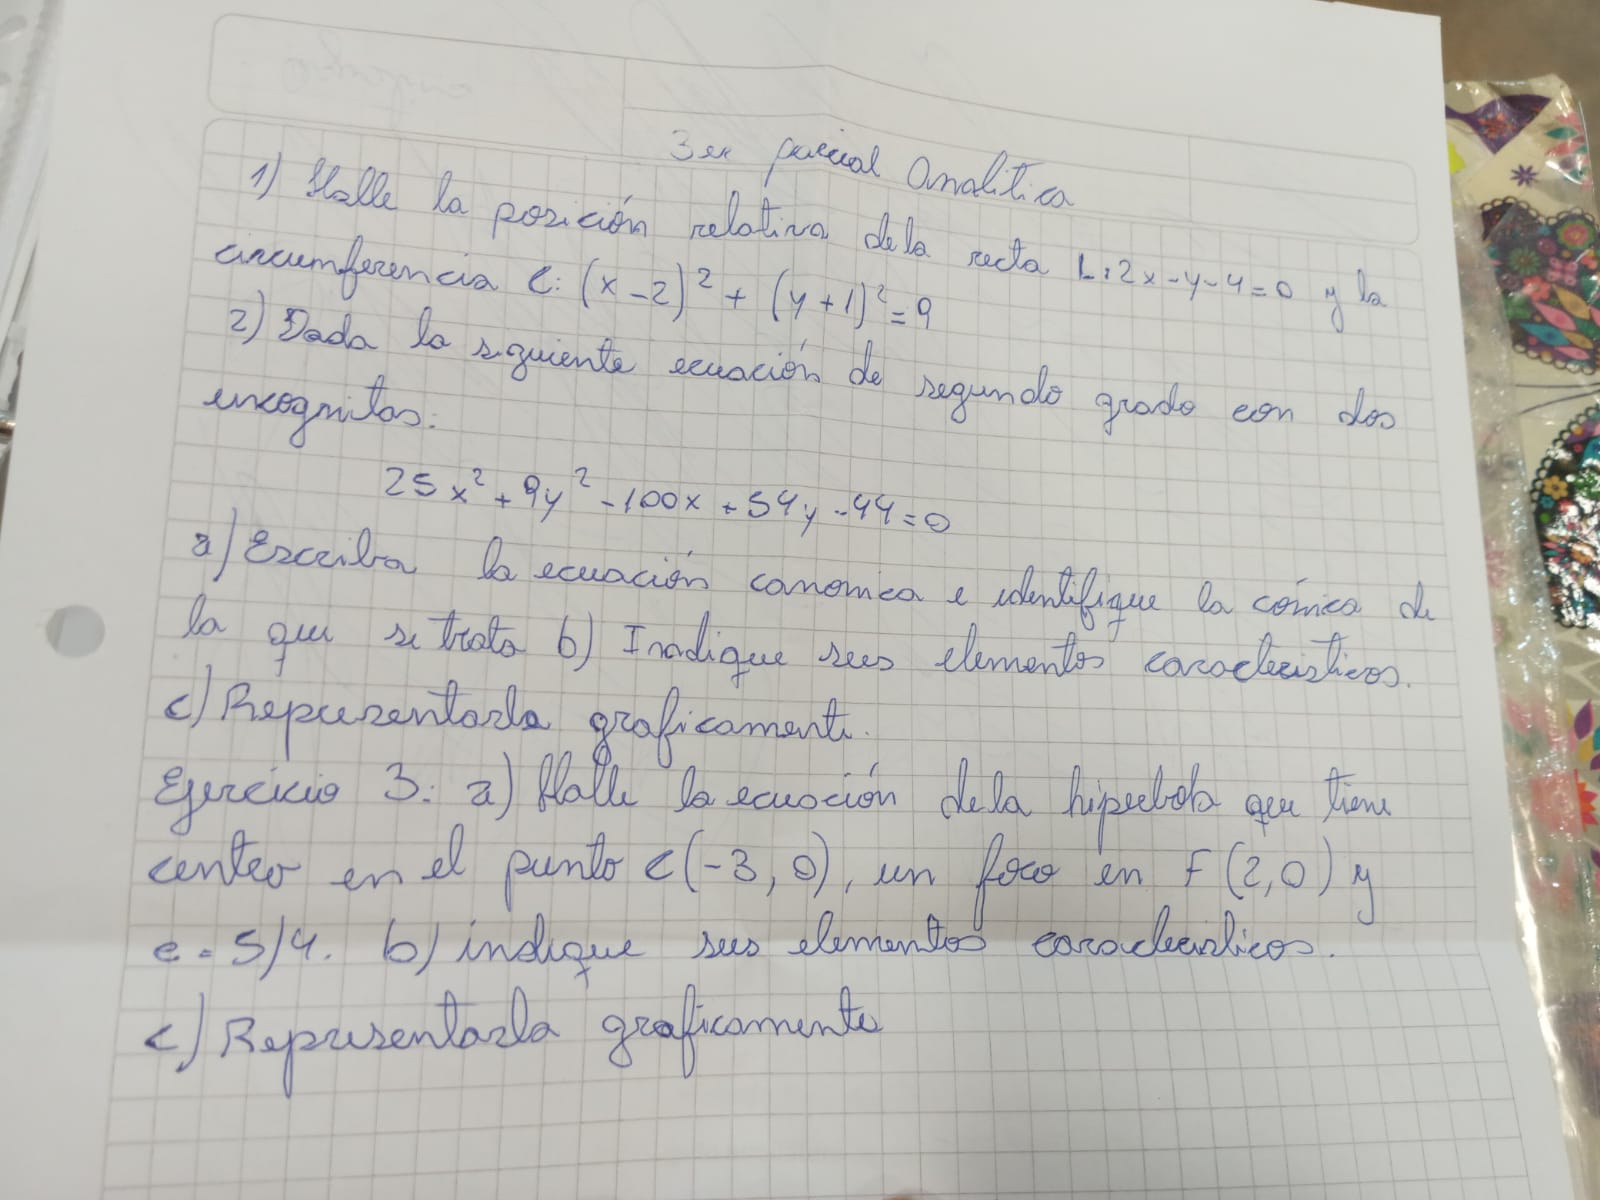 3er parcial Analitica
1) Halle la posición relativa de la recta L: 2x-y-4=0 y la
circumferencia C: (x-2)² + (y+1)² = 9
2) Dada la siguiente ecuación de segundo grado con dos
incognitas:
25x² + 9y² - 100x + 54y - 44 = 0
a) Escriba la ecuación canonica e identifique la cónica de
la que se trata b) Indique sus elementos caracteristicos.
c) Representarla graficamente.
Ejercicio 3: a) Halle la ecuación de la hiperbola que tiene
centro en el punto C(-3, 0), un foco en F(2,0) y
e = 5/4. b) indique sus elementos caracteristicos.
c) Representarla graficamente